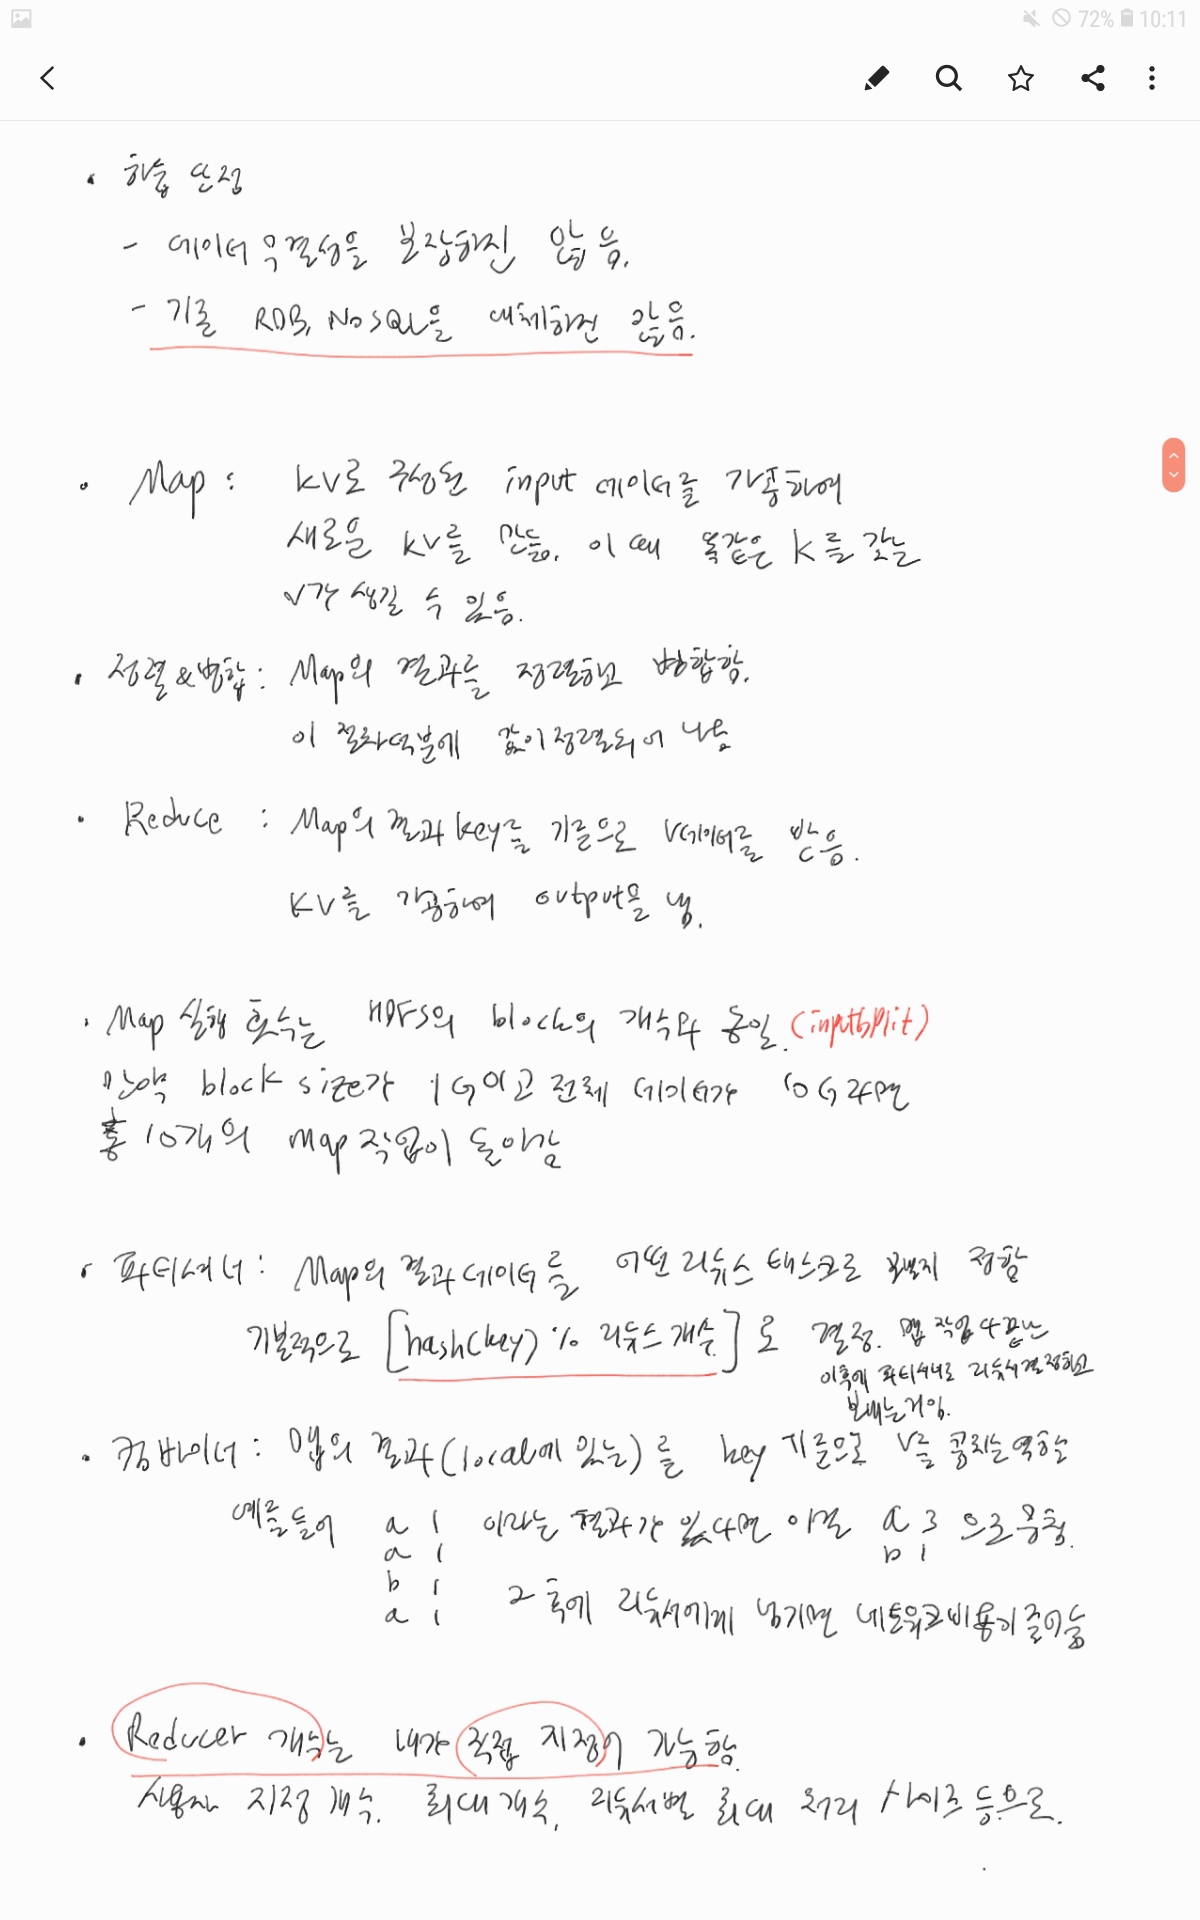 72% 10:11
• 하둡 단점
- 데이터 무결성을 보장하진 않음.
- 기존 RDB, NoSQL을 대체하진 않음.
• Map : KV로 구성된 input 데이터를 가공하여
새로운 KV를 만듦. 이 때 똑같은 K를 갖는
V가 생길 수 있음.
• 정렬&병합 : Map의 결과를 정렬하고 병합함.
이 절차 덕분에 값이 정렬되어 나옴
• Reduce : Map의 결과 key를 기준으로 V데이터를 받음.
KV를 가공하여 output을 냄.
• Map 실행 횟수는 HDFS의 block의 개수와 동일. (inputsplit)
만약 block size가 1G이고 전체 데이터가 10G라면
총 10개의 Map 작업이 돌아감
• 파티셔너 : Map의 결과 데이터를 어떤 리듀스 태스크로 보낼지 정함
기본적으로 [hash(key) % 리듀스 개수] 로 결정. 맵 작업 다 끝난
이후에 파티셔너로 리듀서 결정하고
보내는거임.
• 컴바이너 : 맵의 결과(local에 있는)를 key 기준으로 V를 합치는 역할
예를들어 a 1 이라는 결과가 있다면 이걸 a 3 으로 압축.
a 1 b 1
b 1
a 1 그 후에 리듀서에게 넘기면 네트워크 비용이 줄어듦
• Reducer 개수는 내가 직접 지정이 가능함.
사용자 지정 개수. 최대 개수, 리듀서별 최대 처리 사이즈 등으로.